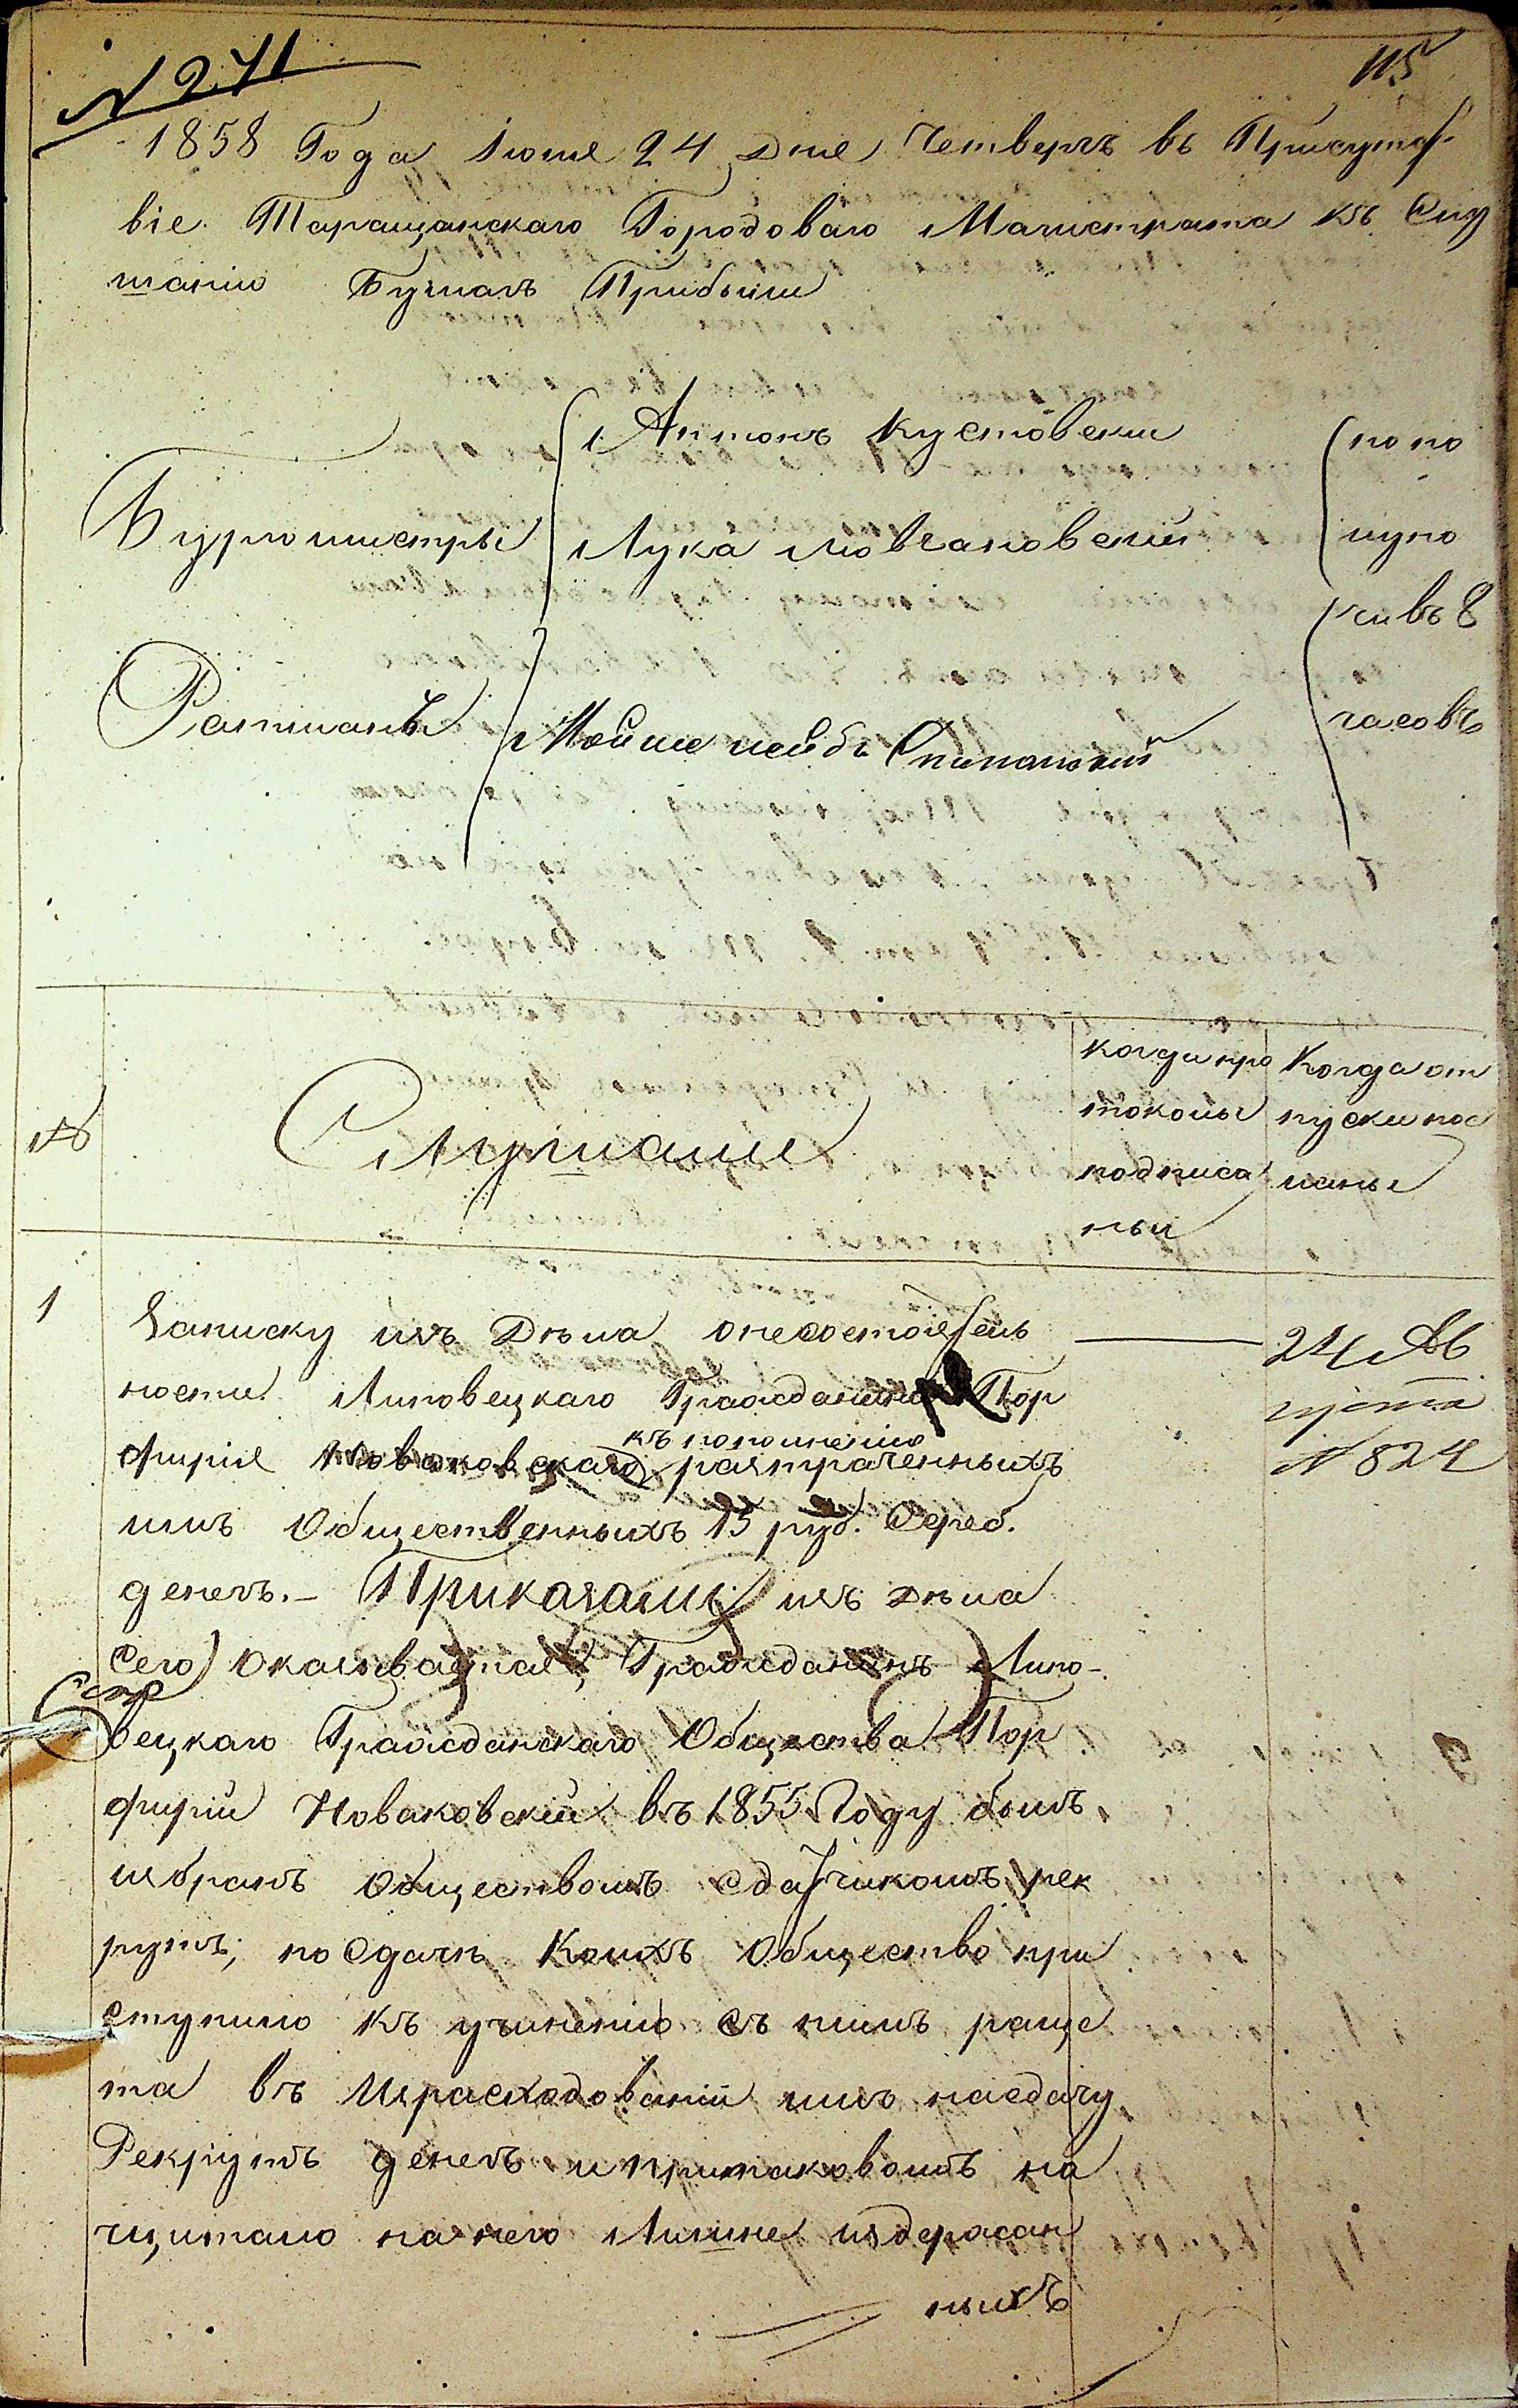 N 271
115
1858 Года Іюля 24 Дня Четвергъ въ Присутст
віе Таращанскаго Городоваго Магистрата къ Слу
шанію Бумагъ Прибыли
Бургомистры
Антонъ Кустовски
Лука Мовчановскій
Ратманъ
Мойше лейбъ
по по
луно
чи въ 8
часовъ
№
Слушали
когда про
токолы
подписа
ны
Когда от
пуски пос
ланы
1
Записку изъ Дѣла о несостоятель
ности Липовецкаго Гражданина Пор
фирія Новаковскаго къ пополненію растраченныхъ
имъ Общественныхъ 15 руб. Сереб.
денегъ. – Приказали: изъ дѣла
Сего оказывается, Гражданинъ Липо-
вецкаго Гражданскаго Общества Пор
фирій Новаковскій въ 1855 Году былъ
избранъ Обществомъ Сдатчикомъ рек
рутъ, по Сдачѣ Коихъ Общество при
ступило къ учиненію съ нимъ раще
та въ Израсходованіи имъ на сдачу
Рекрутъ денегъ и при таковомъ на
чщитало на него Лишне издержан
ныхъ
24 Ав
густа
N 824